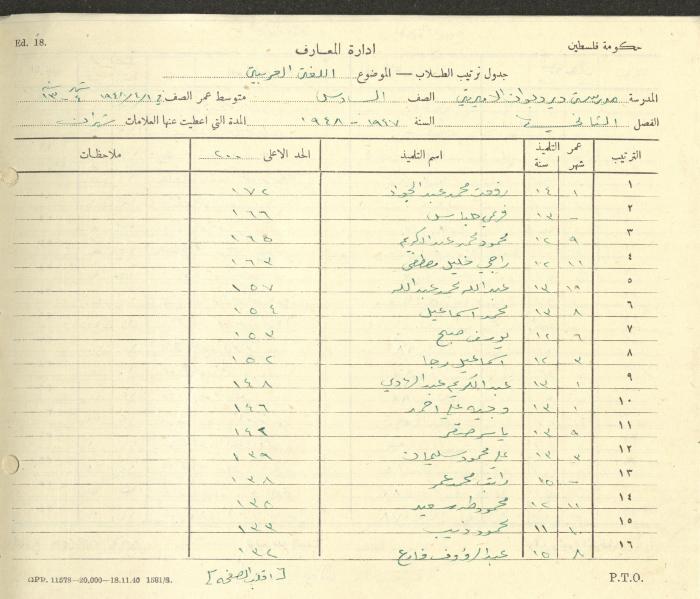 Ed. 18.
حكومة فلسطين
ادارة المعارف
جدول ترتيب الطلاب — الموضوع اللغة العربية
المدرسة مدرسة دير ديوان الاميرية الصف السادس متوسط عمر الصف في ١٩٤٨/٤/١
الفصل الثاني السنة ١٩٤٧ - ١٩٤٨ المدة التي اعطيت عنها العلامات شهران
الترتيب عمر التلميذ شهر سنة اسم التلميذ الحد الاعلى ٢٠٠ ملاحظات
١ ١ ١٤ رفعت محمد عبد الجواد ١٧٢
٢ - ١٣ ١٦٦
٣ ٩ ١٢ محمود محمد عبد الكريم ١٦٥
٤ ١١ ١٢ راجي خليل مصطفى ١٦٣
٥ ١٣ عبد الله محمد عبد الله ١٥٧
٦ ٨ ١٣ محمد اسماعيل ١٥٤
٧ ٦ ١٢ يوسف صبح ١٥٣
٨ ٣ ١٢ اسماعيل رجا ١٥٢
٩ ١ ١٣ عبد الكريم عبد الهادي ١٤٨
١٠ ١ ١٣ وجيه علي احمد ١٤٦
١١ ٩ ١٣ ياسر صقر ١٤٢
١٢ ٣ ١٣ علي محمود سليمان ١٣٩
١٣ - ١٥ راتب محمد عمر ١٣٨
١٤ ١١ ١٢ محمود طه سعيد ١٣٥
١٥ ١٠ ١١ محمود ذيب ١٣٣
١٦ ٨ ١٥ عبد الرؤوف فارع ١٣٢
GPP. 11578—20,000—18.11.40 1581/S.
[اقلب الصفحة]
P.T.O.